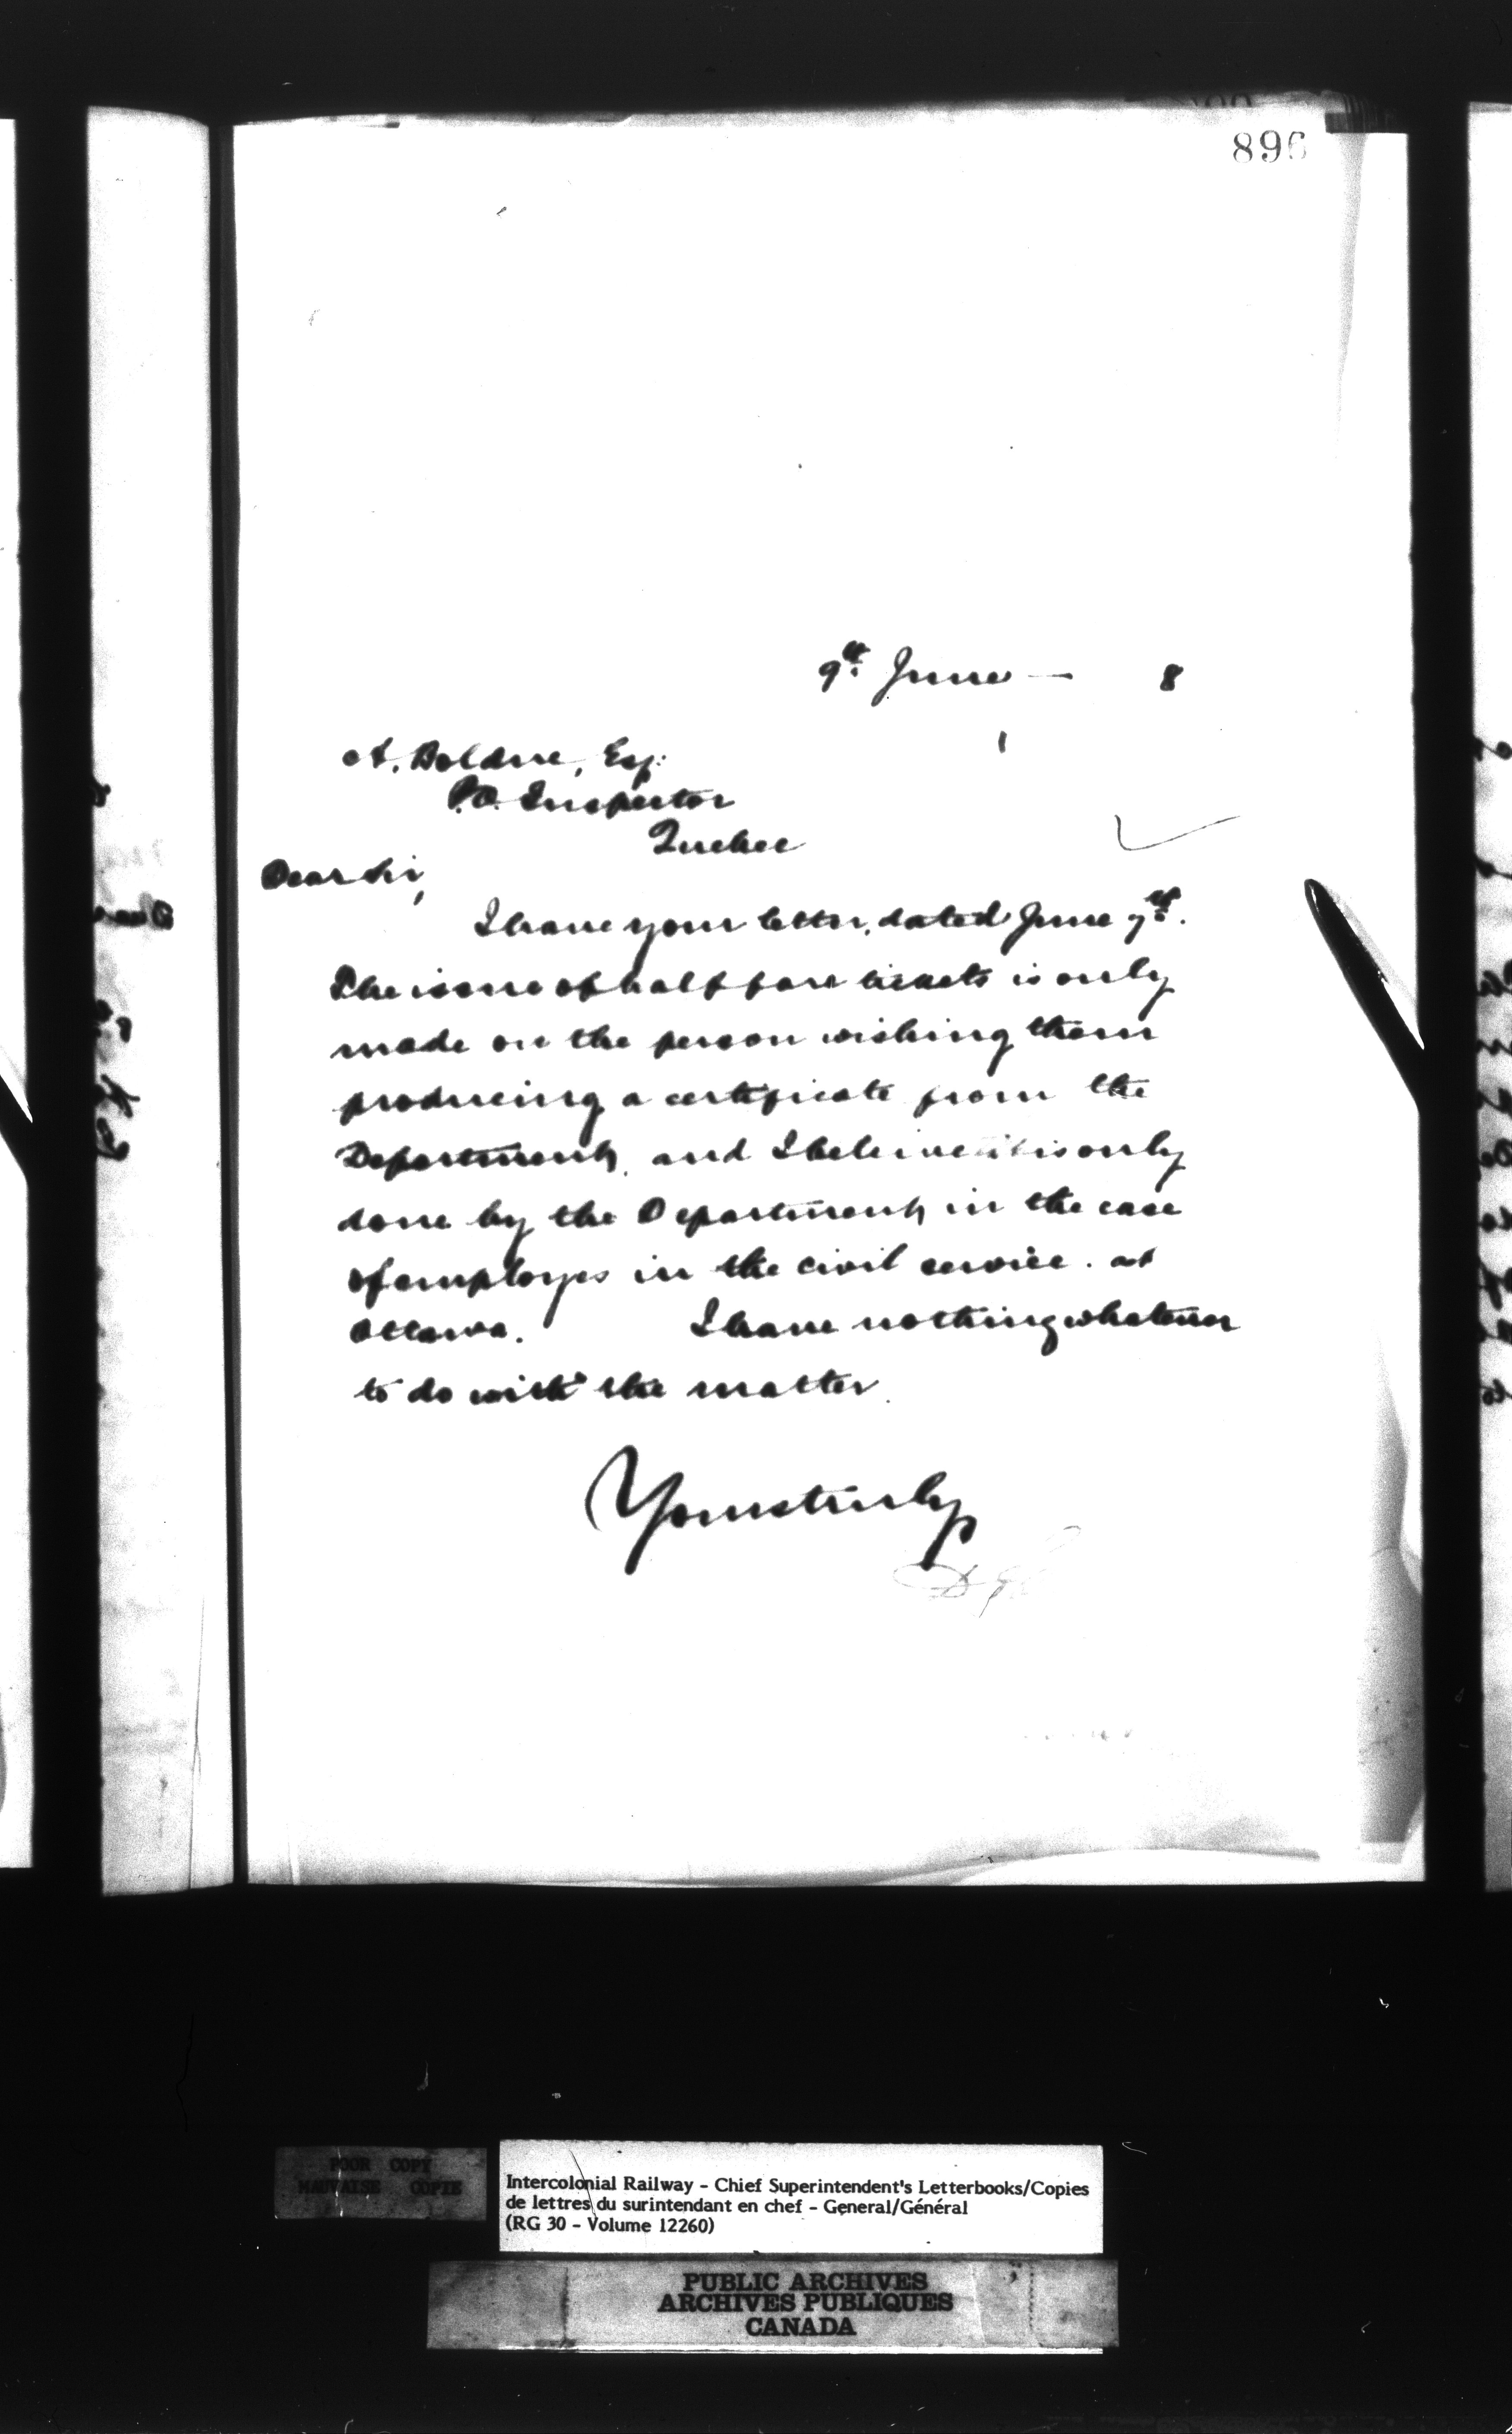 896
9th June — 8
A. Bolduc, Esq.
P.O. Inspector
Quebec
Dear Sir,
I have your letter, dated June 7th.
The issue of half fare tickets is only
made on the person wishing them
producing a certificate from the
Department, and I believe it is only
done by the Department in the case
of employes in the civil service at
Ottawa. I have nothing whatever
to do with the matter.
Yours truly
POOR COPY
MAUVAISE COPIE
Intercolonial Railway - Chief Superintendent's Letterbooks/Copies
de lettres du surintendant en chef - General/Général
(RG 30 - Volume 12260)
PUBLIC ARCHIVES
ARCHIVES PUBLIQUES
CANADA